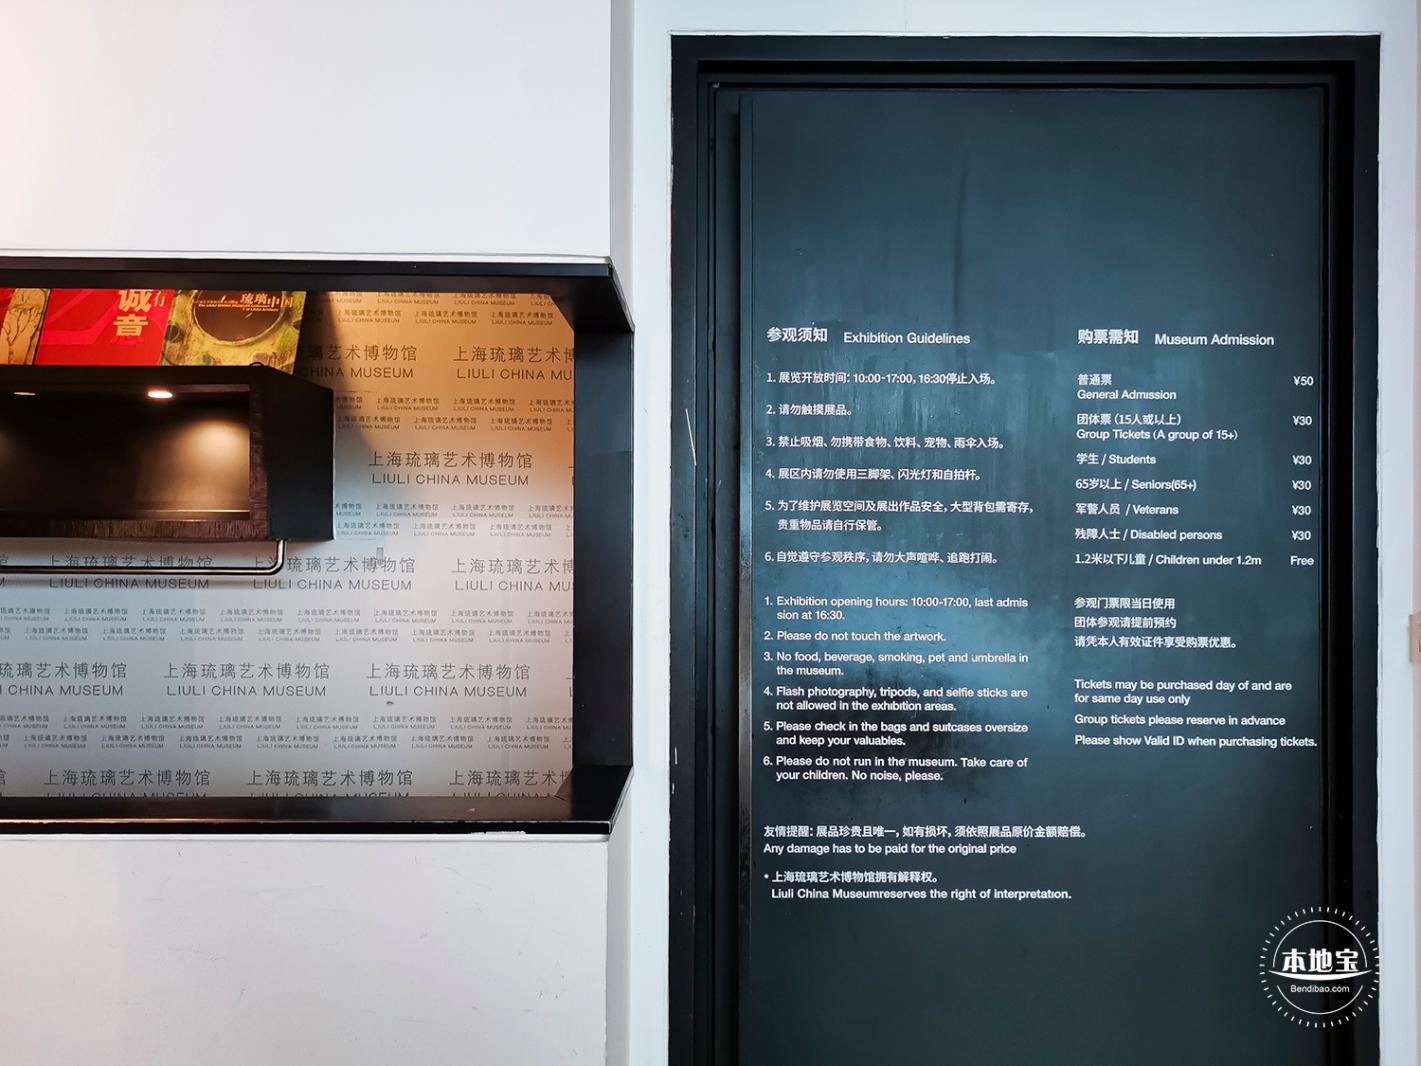 诚
有
音
琉璃中国
上海琉璃艺术博物馆
LIULI CHINA MUSEUM
上海琉璃艺术博物馆
LIULI CHINA MUSEUM
上海琉璃艺术博物馆
LIULI CHINA MUSEUM
上海琉璃艺术博物馆
LIULI CHINA MUSEUM
上海琉璃艺术博物馆
LIULI CHINA MUSEUM
上海琉璃艺术博物馆
LIULI CHINA MUSEUM
参观须知 Exhibition Guidelines
1. 展览开放时间：10:00-17:00, 16:30停止入场。
2. 请勿触摸展品。
3. 禁止吸烟、勿携带食物、饮料、宠物、雨伞入场。
4. 展区内请勿使用三脚架、闪光灯和自拍杆。
5. 为了维护展览空间及展出作品安全，大型背包需寄存，
贵重物品请自行保管。
6. 自觉遵守参观秩序，请勿大声喧哗、追跑打闹。
1. Exhibition opening hours: 10:00-17:00, last admis
sion at 16:30.
2. Please do not touch the artwork.
3. No food, beverage, smoking, pet and umbrella in
the museum.
4. Flash photography, tripods, and selfie sticks are
not allowed in the exhibition areas.
5. Please check in the bags and suitcases oversize
and keep your valuables.
6. Please do not run in the museum. Take care of
your children. No noise, please.
友情提醒：展品珍贵且唯一，如有损坏，须依照展品原价金额赔偿。
Any damage has to be paid for the original price
* 上海琉璃艺术博物馆拥有解释权。
Liuli China Museumreserves the right of interpretation.
购票需知 Museum Admission
普通票 ¥50
General Admission
团体票（15人或以上） ¥30
Group Tickets (A group of 15+)
学生 / Students ¥30
65岁以上 / Seniors(65+) ¥30
军警人员 / Veterans ¥30
残障人士 / Disabled persons ¥30
1.2米以下儿童 / Children under 1.2m Free
参观门票限当日使用
团体参观请提前预约
请凭本人有效证件享受购票优惠。
Tickets may be purchased day of and are
for same day use only
Group tickets please reserve in advance
Please show Valid ID when purchasing tickets.
本地宝
Bendibao.com